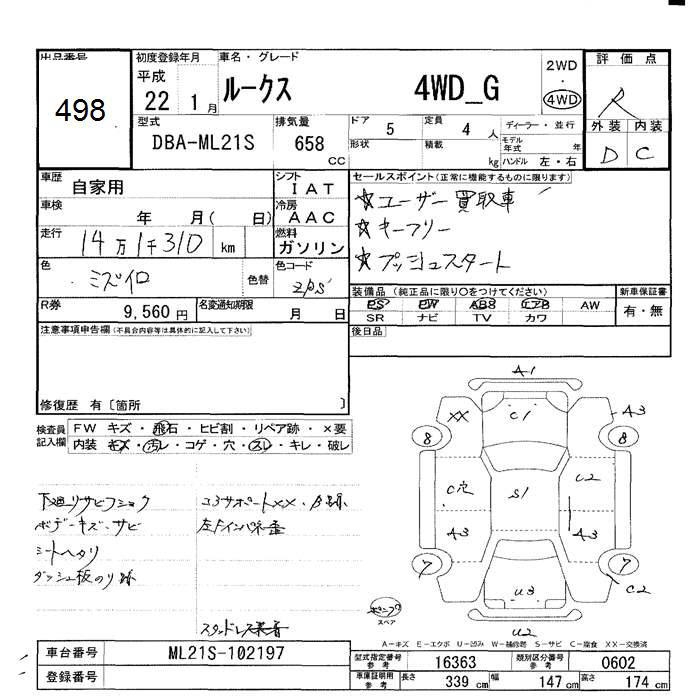 出品番号
498
初度登録年月
平成
22 1月
車名・グレード
ルークス 4WD_G
2WD
・
4WD
評価点
R
外装 内装
D C
型式
DBA-ML21S
排気量
658
CC
ドア 5
定員 4 人
ディーラー・並行
形状
積載 kg
モデル年式 年
ハンドル 左・右
車歴 自家用
シフト IAT
車検 年 月( 日)
冷房 AAC
走行 14万1千310 km
燃料 ガソリン
色 ミズイロ 色替
色コード
R券 9,560円
名変通知期限 月 日
セールスポイント(正常に機能するものに限ります)
☆ユーザー買取車
☆キーフリー
☆プッシュスタート
装備品(純正品に限り○をつけてください)
PS PW ABS エアB AW
SR ナビ TV カワ
新車保証書
有・無
後日品
注意事項申告欄(不具合内容等は具体的に記入して下さい)
修復歴 有〔箇所 〕
検査員記入欄
FW キズ・飛石・ヒビ割・リペア跡・×要
内装 キズ・汚レ・コゲ・穴・スレ・キレ・破レ
下廻リサビ
ボデーキズ・サビ
シートヘタリ
ダッシュ板のり跡
コアサポートXX
左Fインパネ歪
A1
XX
C1
A3
8
8
C穴
S1
U2
A3
A3
7
7
U3
C2
U2
スペア
A-キズ E-エクボ U-凹み W-補修跡 S-サビ C-腐食 XX-交換済
車台番号 ML21S-102197
登録番号
型式指定番号 参考 16363
類別区分番号 参考 0602
車庫証明用 参考 長さ 339 cm 幅 147 cm 高さ 174 cm